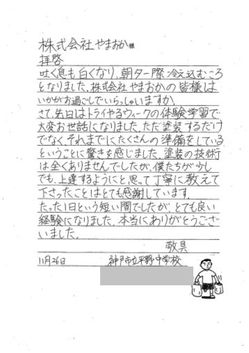 株式会社やまおか様
拝啓
吐く息も白くなり、朝夕一際冷え込むころ
となりました。株式会社やまおかの皆様は
いかがお過ごしでいらっしゃいますか
さて、先日はトライやるウィークの体験学習で
大変お世話になりました。ただ塗装するだけ
でなく、それまでにたくさんの準備をしている
ということに驚きを感じました。塗装の技術
は全くありませんでしたが、僕たちが少し
でも上達するようにと思って丁寧に教えて
下さったことはとても感謝しています。
たった1日という短い間でしたが、とても良い
経験になりました。本当にありがとうござい
ました。
敬具
11月26日 神戸市立平野中学校